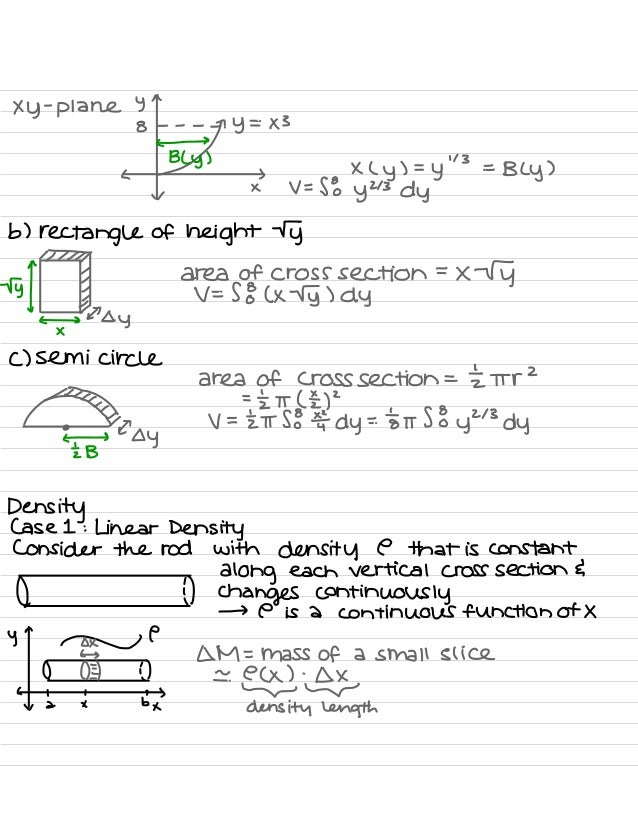 xy-plane
y
8
y = x³
B(y)
x
x(y) = y^1/3 = B(y)
V = ∫₀⁸ y^2/3 dy
b) rectangle of height √y
√y
Δy
x
area of cross section = x√y
V = ∫₀⁸ (x√y) dy
c) semi circle
Δy
½B
area of cross section = ½ πr²
= ½ π (x/2)²
V = ½π ∫₀⁸ x²/4 dy = ⅛π ∫₀⁸ y^2/3 dy
Density
Case 1: Linear Density
Consider the rod with density ρ that is constant
along each vertical cross section &
changes continuously
→ ρ is a continuous function of x
y
Δx
ρ
a
x
b
x
ΔM = mass of a small slice
≃ ρ(x) · Δx
density length